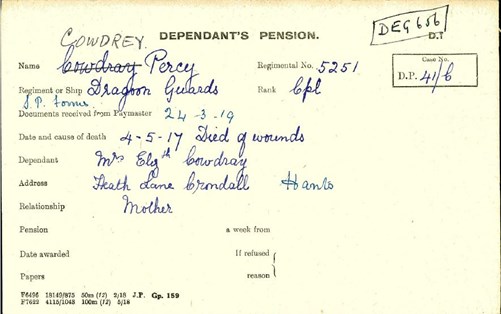 COWDREY. DEPENDANT'S PENSION. DEG 656
D.T
Name Cowdray Percy Regimental No. 5251 Case No.
Regiment or Ship Dragoon Guards Rank Cpl D.P. 41/6
Documents received from Paymaster 24-3-19
Date and cause of death 4-5-17 Died of wounds
Dependant Mrs Elizth Cowdray
Address Heath Lane Crondall Hants
Relationship Mother
Pension a week from
Date awarded If refused
Papers reason
F6496 18149/875 50m (12) 2/18 J.P. Gp. 159
F7622 4115/1043 100m (12) 5/18